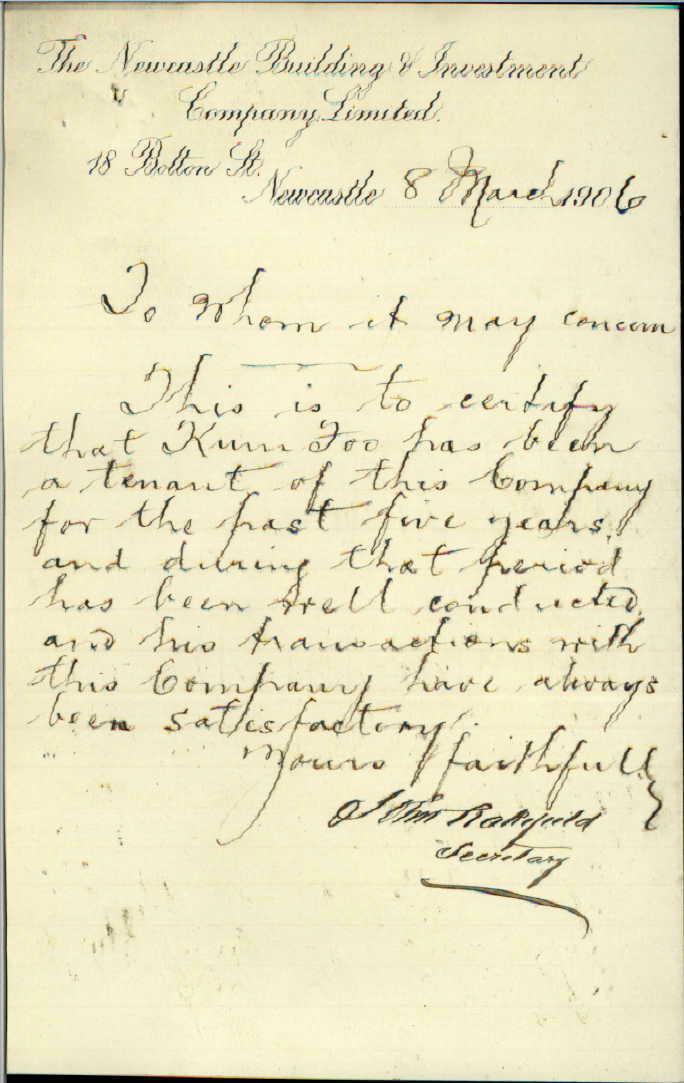 The Newcastle Building & Investment
Company Limited.
18 Bolton St.
Newcastle 8 March 1906
To Whom it may concern
This is to certify
that Kum Foo has been
a tenant of this Company
for the past five years,
and during that period
has been well conducted,
and his transactions with
this Company have always
been satisfactory.
Yours faithfully
John
Secretary